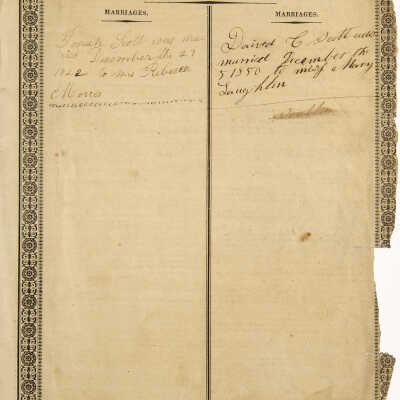 MARRIAGES.
Scott was ma
ried December the 27
1822 to Mrs Rebecca
Morris
MARRIAGES.
David C Scott was
married December the
5 1850 to miss Mary
Laughlin